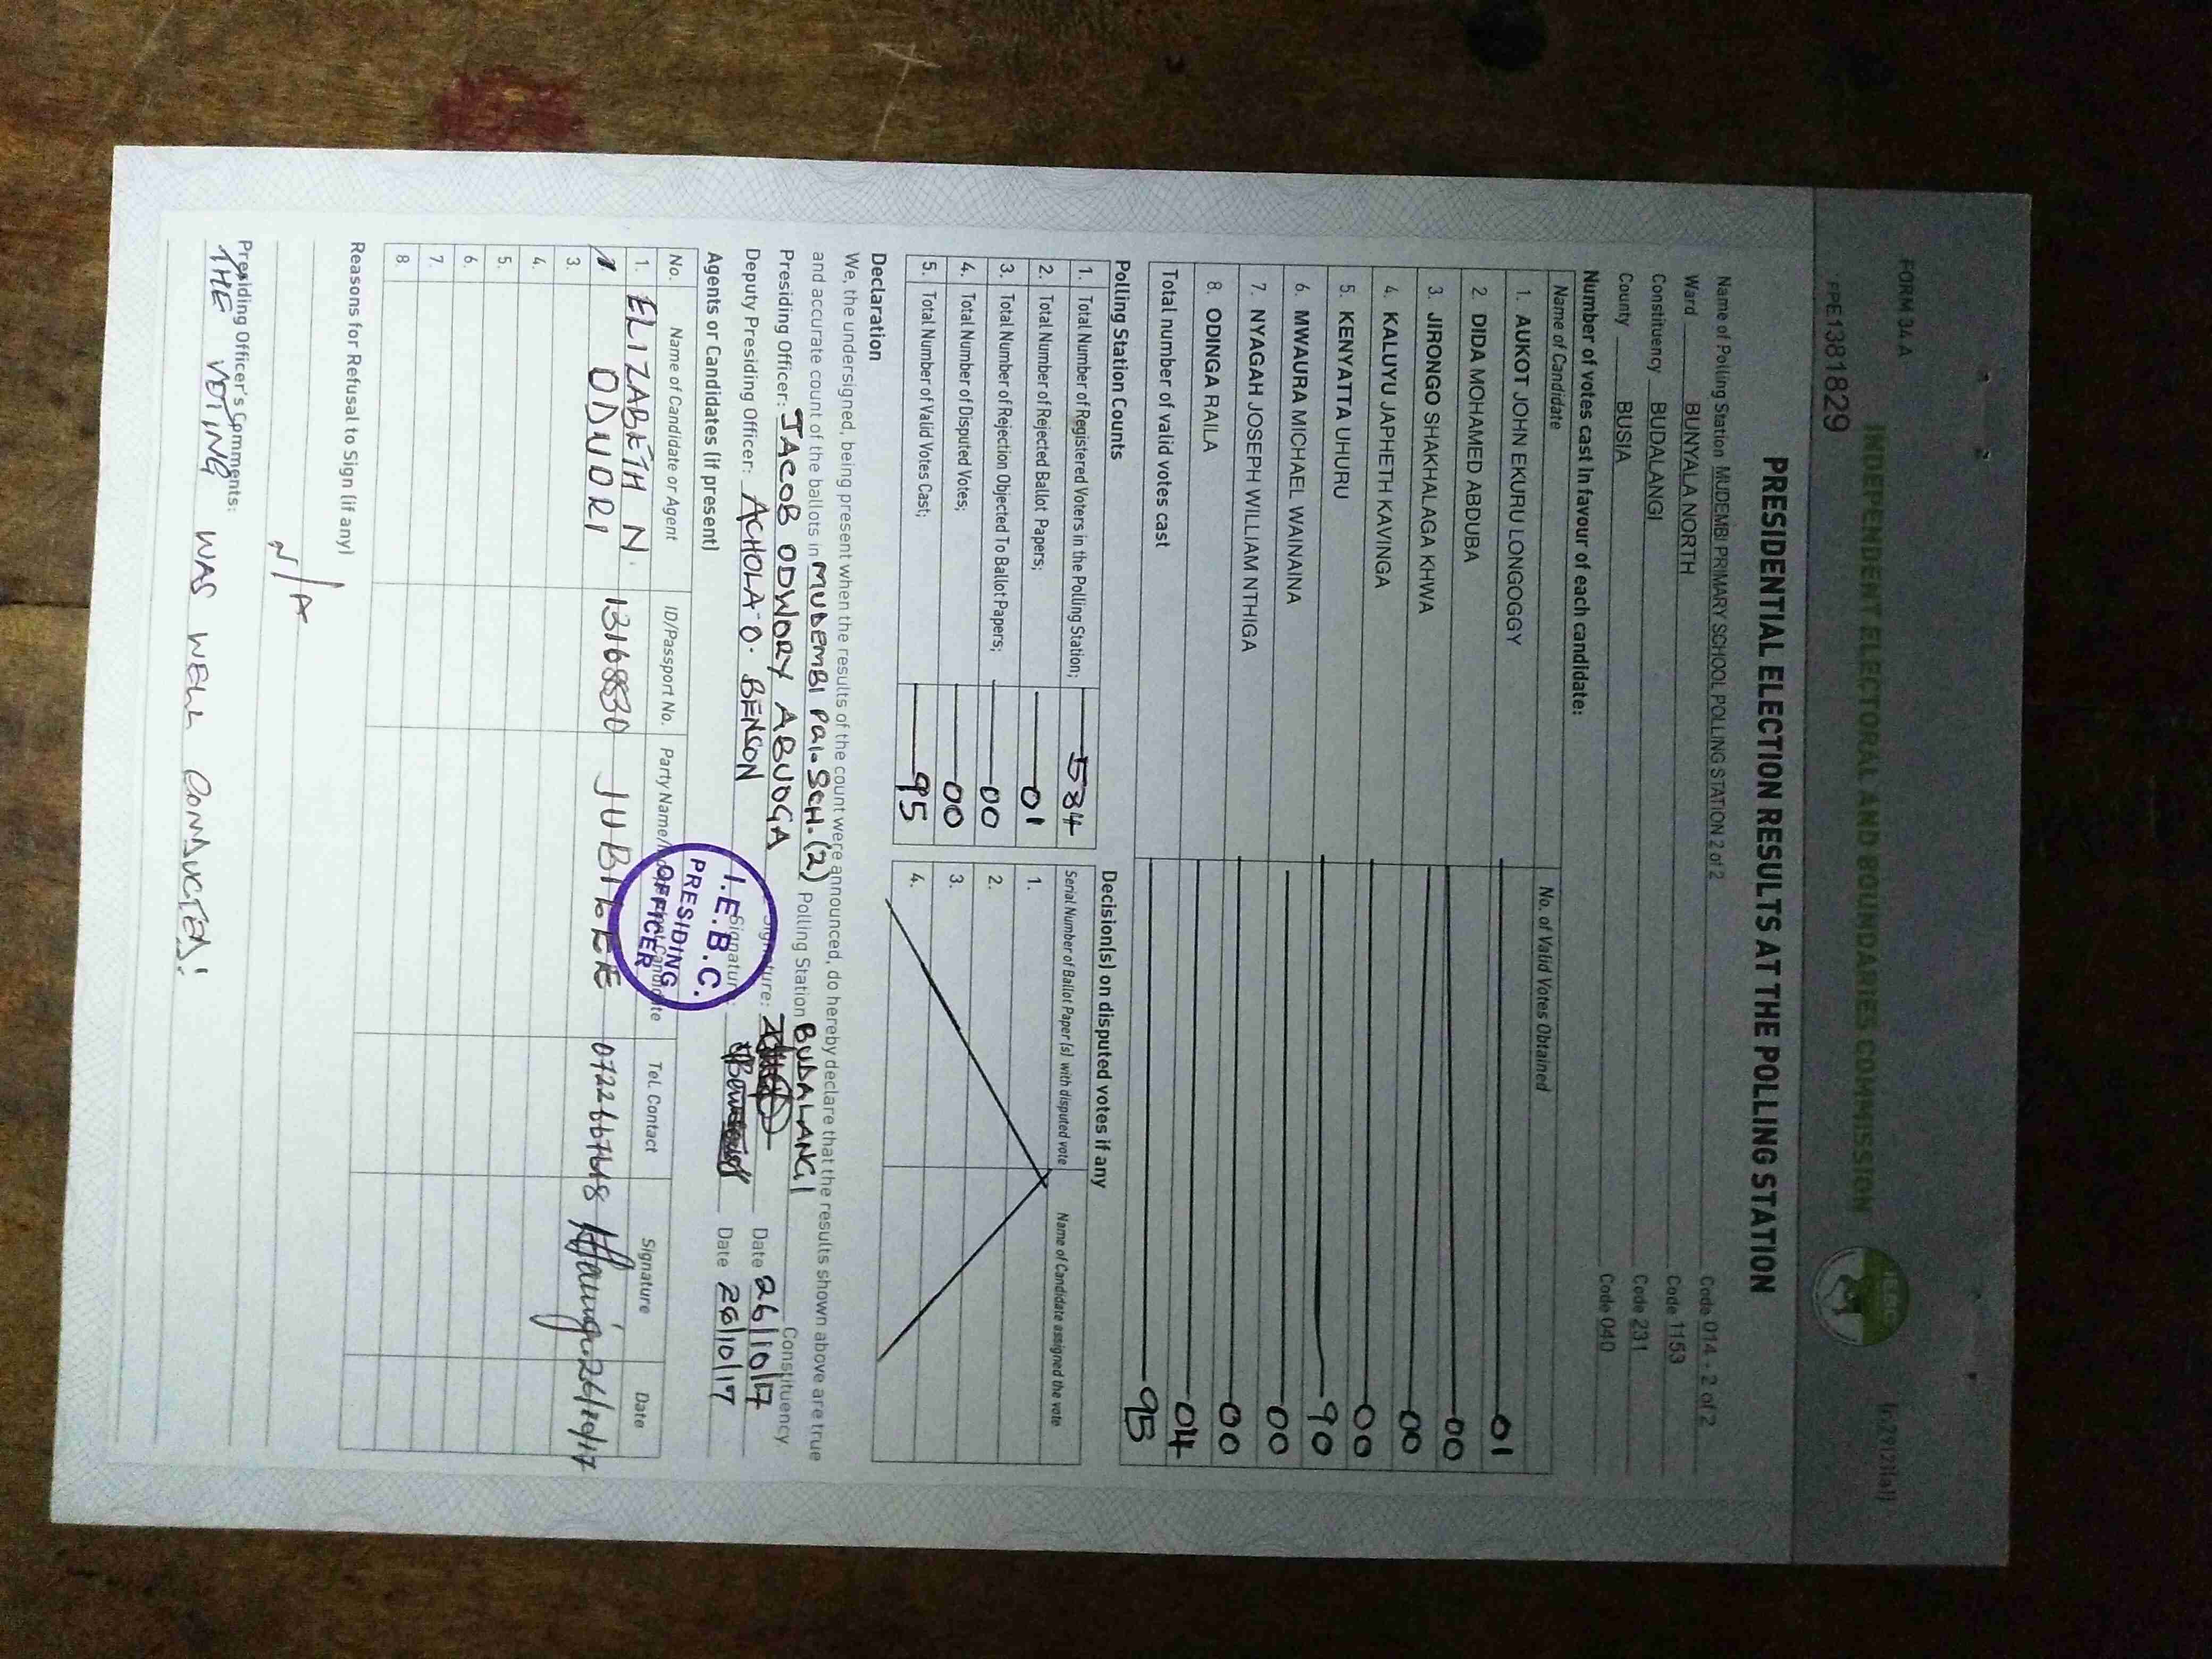 FORM 34 A
(r.79(2)(a))
INDEPENDENT ELECTORAL AND BOUNDARIES COMMISSION
IEBC
PPE1381829
PRESIDENTIAL ELECTION RESULTS AT THE POLLING STATION
Name of Polling Station MUDEMBI PRIMARY SCHOOL POLLING STATION 2 of 2 Code 014 - 2 of 2
Ward BUNYALA NORTH Code 1153
Constituency BUDALANGI Code 231
County BUSIA Code 040
Number of votes cast in favour of each candidate:
Name of Candidate No. of Valid Votes Obtained
1. AUKOT JOHN EKURU LONGOGGY 01
2. DIDA MOHAMED ABDUBA 00
3. JIRONGO SHAKHALAGA KHWA 00
4. KALUYU JAPHETH KAVINGA 00
5. KENYATTA UHURU 90
6. MWAURA MICHAEL WAINAINA 00
7. NYAGAH JOSEPH WILLIAM NTHIGA 00
8. ODINGA RAILA 04
Total number of valid votes cast 95
Polling Station Counts
1. Total Number of Registered Voters in the Polling Station; 584
2. Total Number of Rejected Ballot Papers; 01
3. Total Number of Rejection Objected To Ballot Papers; 00
4. Total Number of Disputed Votes; 00
5. Total Number of Valid Votes Cast; 95
Decision(s) on disputed votes if any
Serial Number of Ballot Paper (s) with disputed vote Name of Candidate assigned the vote
1.
2.
3.
4.
Declaration
We, the undersigned, being present when the results of the count were announced, do hereby declare that the results shown above are true
and accurate count of the ballots in MUDEMBI PRI. SCH. (2) Polling Station BUDALANGI Constituency
Presiding Officer: JACOB ODWORY ABUOGA Signature: Date 26/10/17
Deputy Presiding Officer: ACHOLA O. BENSON Signature: Date 26/10/17
I.E.B.C.
PRESIDING
OFFICER
Agents or Candidates (if present)
No. Name of Candidate or Agent ID/Passport No. Party Name/ Candidate Tel. Contact Signature Date
1. ELIZABETH N. ODUORI 13168530 JUBILEE 26/10/17
3.
4.
5.
6.
7.
8.
Reasons for Refusal to Sign (if any)
N/A
Presiding Officer's Comments:
THE VOTING WAS WELL CONDUCTED!